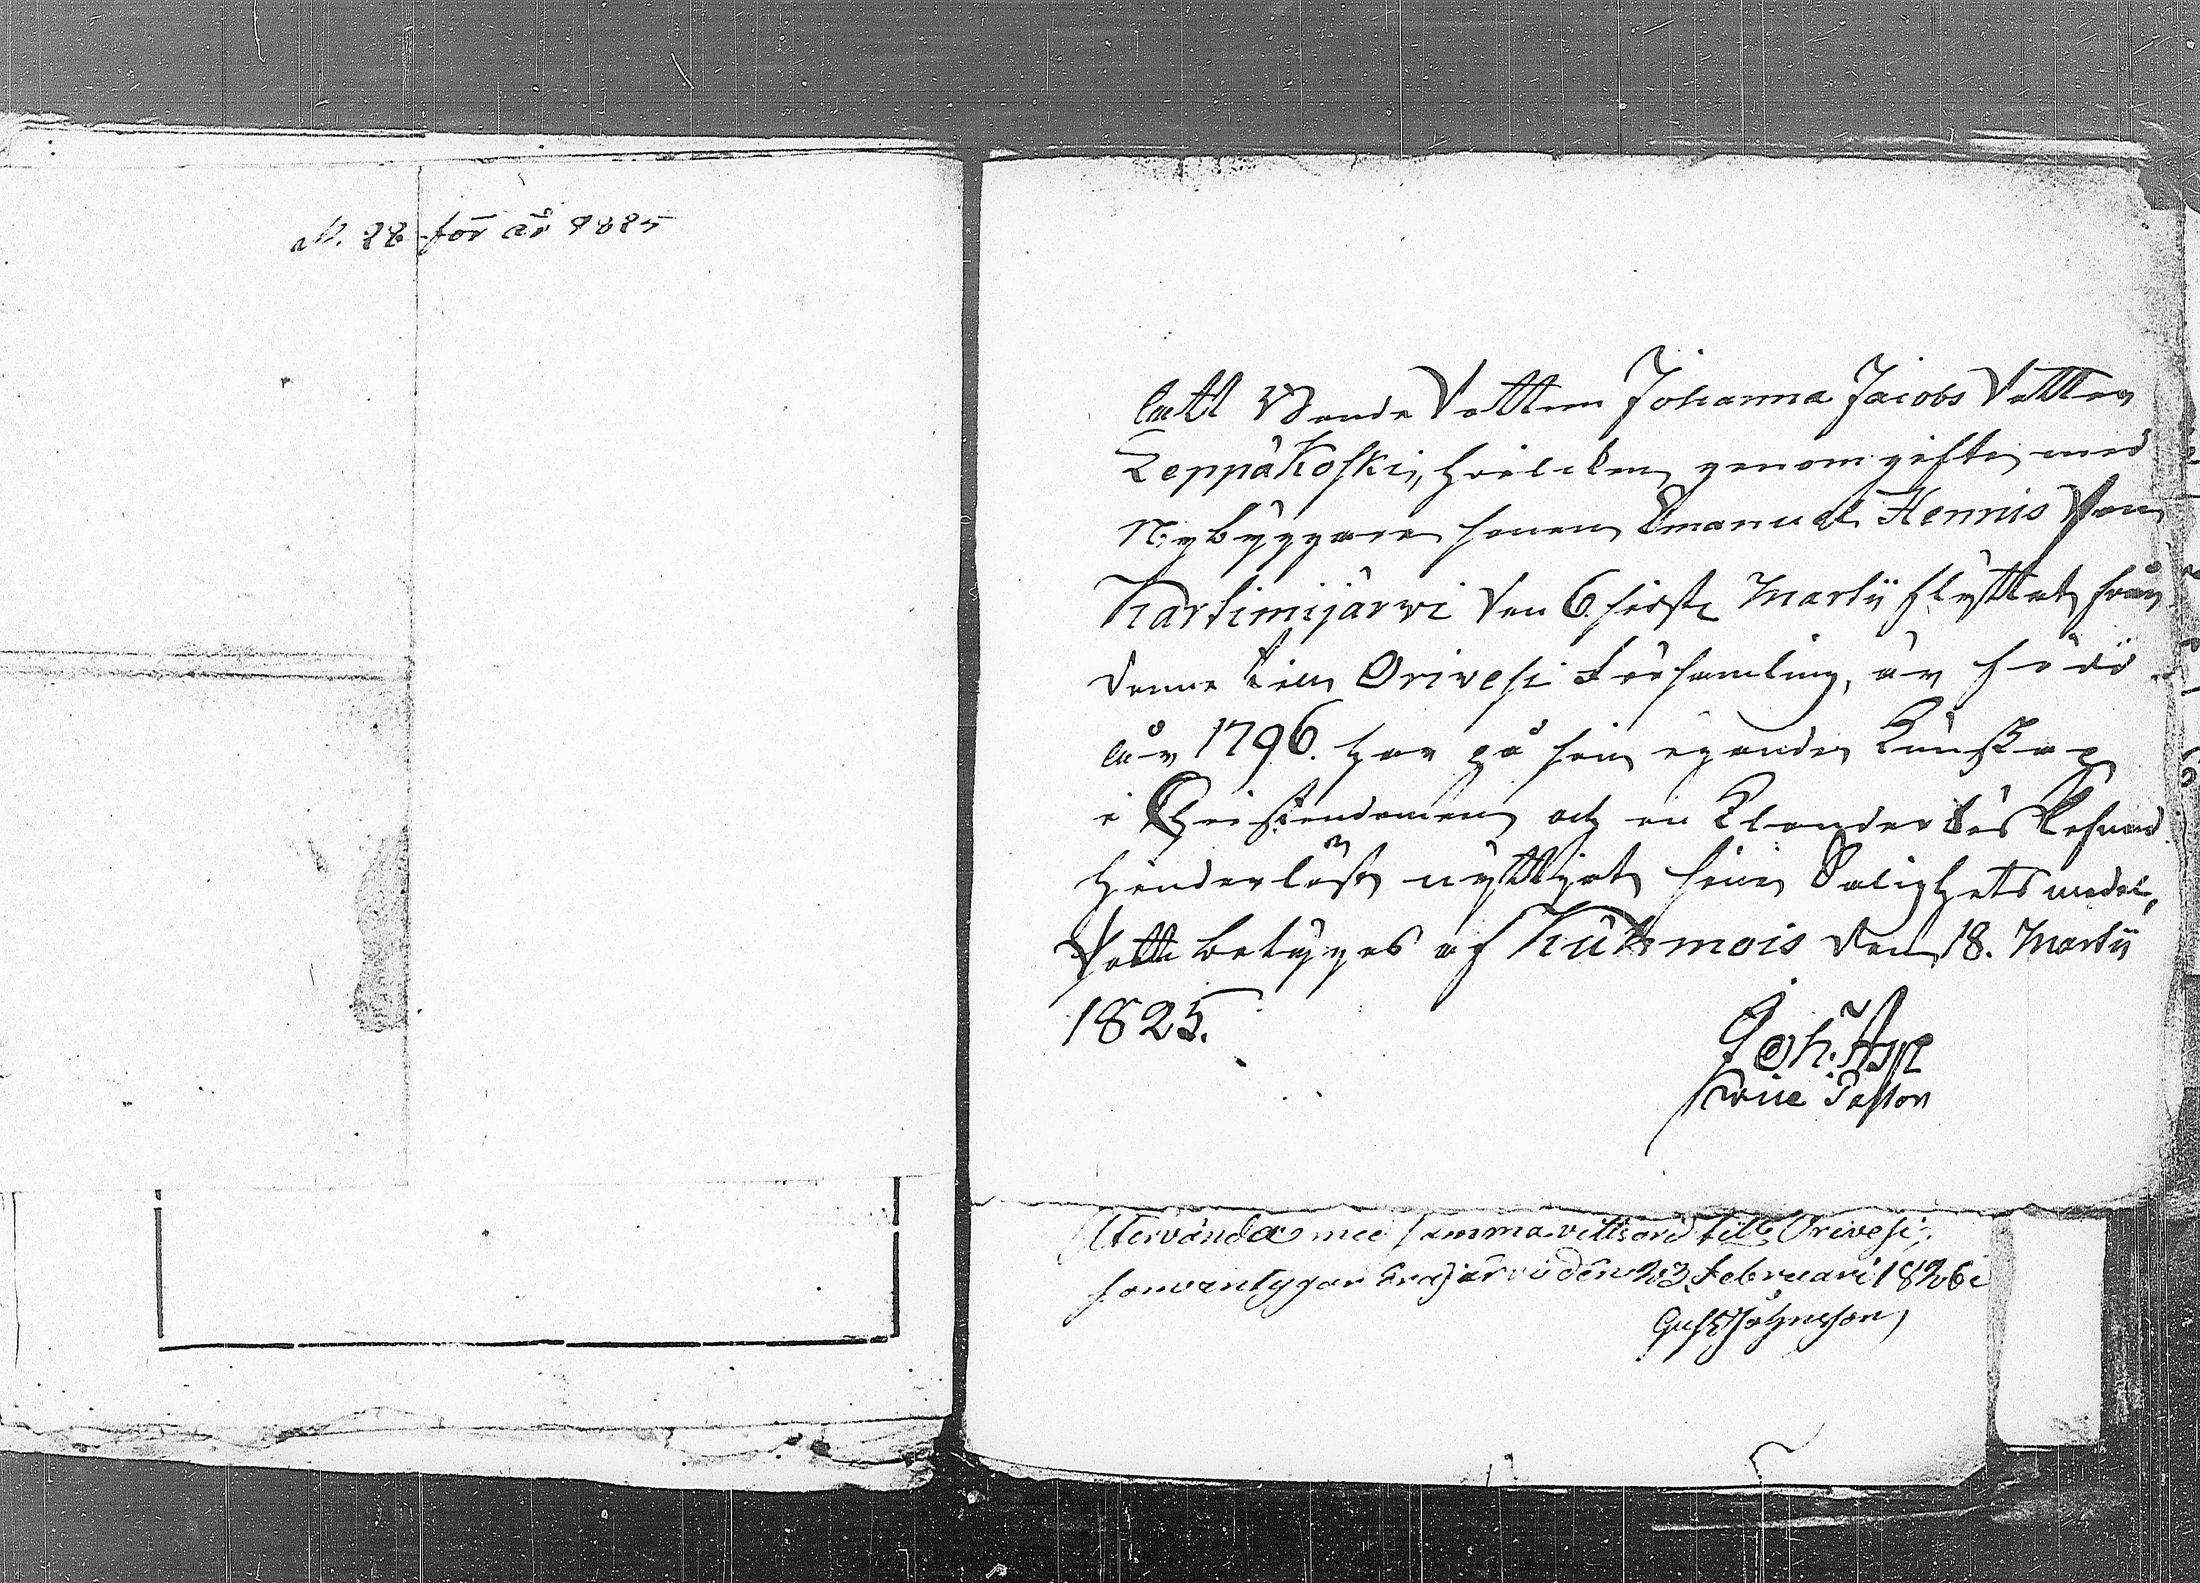 N. 28 för år 1825
Att Bonde Dottern Johanna Jacobs Dotter
Leppäkoski, hvilcken genom gifte med
Nybyggare sonen Emanuel Hennis Son
Karsimijärwi den 6. sistl. Martii flyttat från
denne till Orivesi Församling, är född
år 1796. har på sin egande Kunskap
i Christendomen och en Klanderlös lefnad
hinderlöst nyttjat sine Salighets medel,
Dett betyges af Kuhmois den 18. Martii
1825.
Joh. Asp
vice Pastor
Återvänder med samma vittsord till Orivesi,
som intygar Eräjärvi den 23 Februari 1826
Gust Johnsson